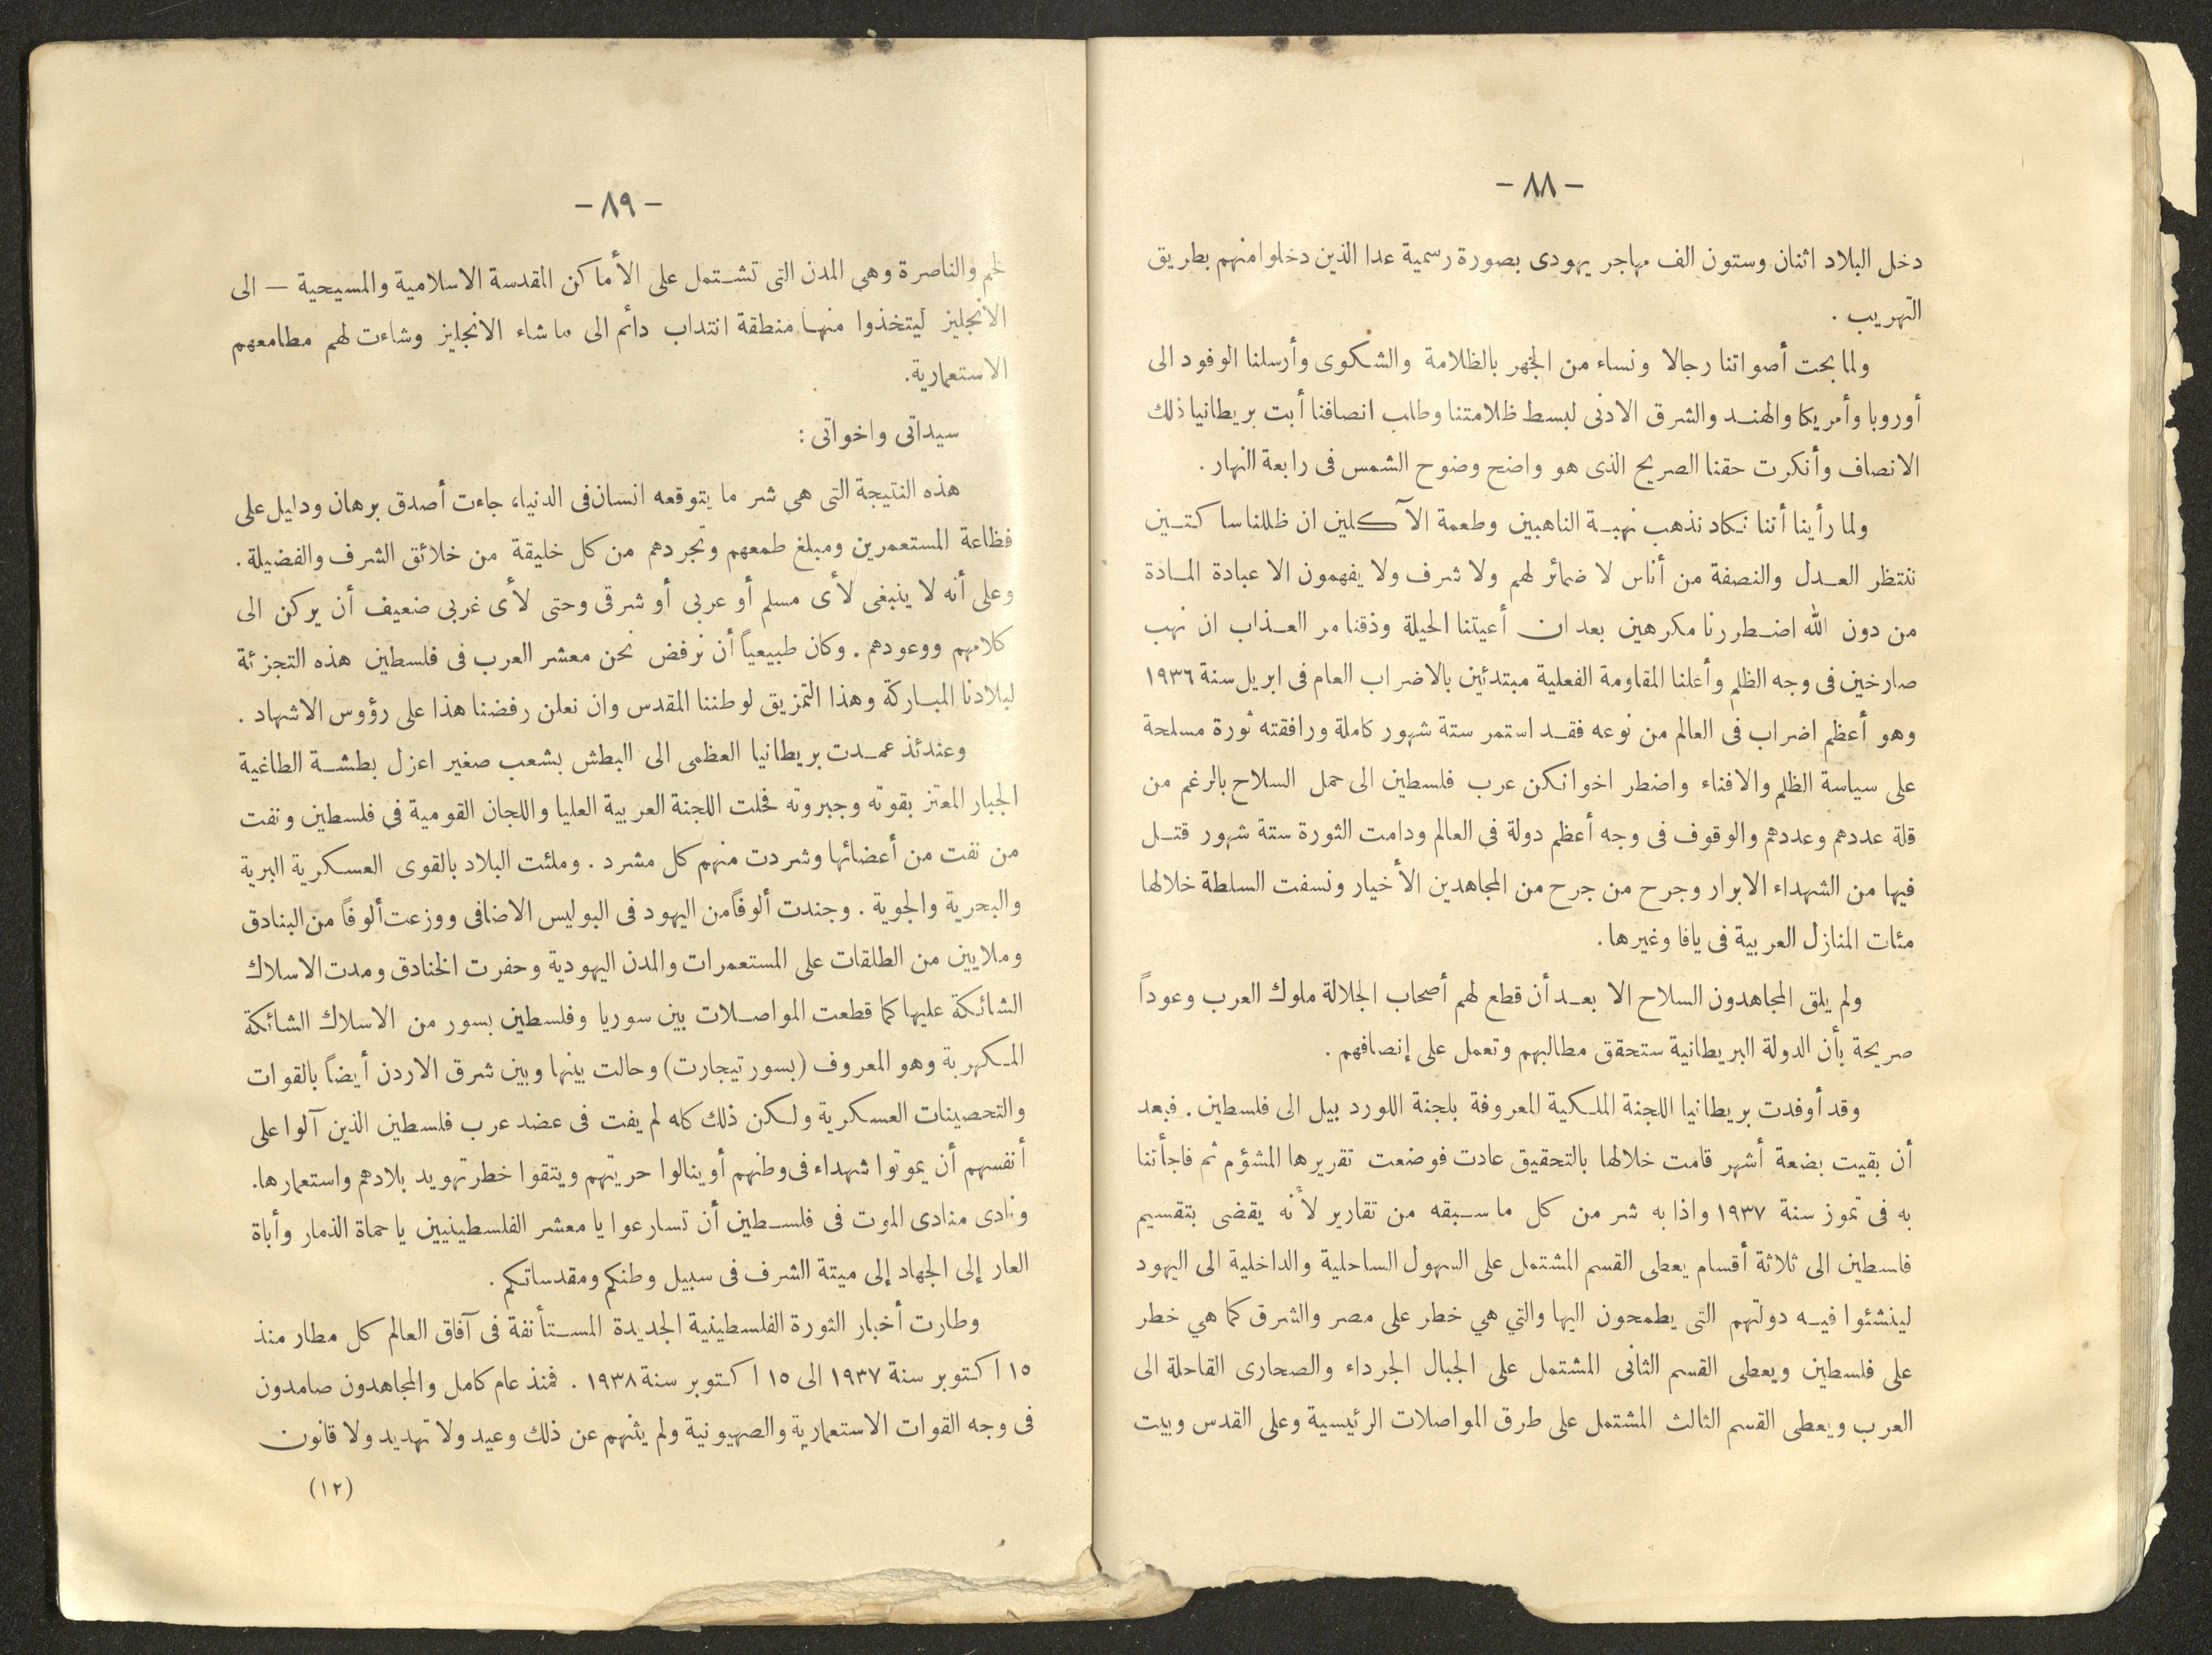 - ٨٨ -
دخل البلاد اثنان وستون الف مهاجر يهودى بصورة رسمية عدا الذين دخلوا منهم بطريق
التهريب .
ولما بحت أصواتنا رجالا ونساء من الجهر بالظلامة والشكوى وأرسلنا الوفود الى
أوروبا وأمريكا والهند والشرق الادنى لبسط ظلامتنا وطلب انصافنا أبت بريطانيا ذلك
الانصاف وأنكرت حقنا الصريح الذى هو واضح وضوح الشمس فى رابعة النهار .
ولما رأينا أننا نكاد نذهب نهبة الناهبين وطعمة الآكلين ان ظللنا ساكتين
ننتظر العدل والنصفة من أناس لا ضمائر لهم ولا شرف ولا يفهمون الا عبادة المادة
من دون الله اضطررنا مكرهين بعد ان أعيتنا الحيلة وذقنا مر العذاب ان نهب
صارخين فى وجه الظلم وأعلنا المقاومة الفعلية مبتدئين بالاضراب العام فى ابريل سنة ١٩٣٦
وهو أعظم اضراب فى العالم من نوعه فقد استمر ستة شهور كاملة ورافقته ثورة مسلحة
على سياسة الظلم والافناء واضطر اخوانكن عرب فلسطين الى حمل السلاح بالرغم من
قلة عددهم وعددهم والوقوف فى وجه أعظم دولة في العالم ودامت الثورة ستة شهور قتل
فيها من الشهداء الابرار وجرح من جرح من المجاهدين الأخيار ونسفت السلطة خلالها
مئات المنازل العربية فى يافا وغيرها .
ولم يلق المجاهدون السلاح الا بعد أن قطع لهم أصحاب الجلالة ملوك العرب وعوداً
صريحة بأن الدولة البريطانية ستحقق مطالبهم وتعمل على إنصافهم .
وقد أوفدت بريطانيا اللجنة الملكية المعروفة بلجنة اللورد بيل الى فلسطين . فبعد
أن بقيت بضعة أشهر قامت خلالها بالتحقيق عادت فوضعت تقريرها المشؤم ثم فاجأتنا
به فى تموز سنة ١٩٣٧ واذا به شر من كل ما سبقه من تقارير لأنه يقضى بتقسيم
فلسطين الى ثلاثة أقسام يعطى القسم المشتمل على السهول الساحلية والداخلية الى اليهود
لينشئوا فيه دولتهم التى يطمحون اليها والتي هي خطر على مصر والشرق كما هي خطر
على فلسطين ويعطى القسم الثانى المشتمل على الجبال الجرداء والصحارى القاحلة الى
العرب ويعطى القسم الثالث المشتمل على طرق المواصلات الرئيسية وعلى القدس وبيت
- ٨٩ -
لحم والناصرة وهي المدن التى تشتمل على الأماكن المقدسة الاسلامية والمسيحية – الى
الانجليز ليتخذوا منها منطقة انتداب دائم الى ما شاء الانجليز وشاءت لهم مطامعهم
الاستعمارية.
سيداتى واخواتى :
هذه النتيجة التى هي شر ما يتوقعه انسان فى الدنيا، جاءت أصدق برهان ودليل على
فظاعة المستعمرين ومبلغ طمعهم وتجردهم من كل خليقة من خلائق الشرف والفضيلة .
وعلى أنه لا ينبغى لأى مسلم أو عربى أو شرقى وحتى لأى غربى ضعيف أن يركن الى
كلامهم ووعودهم . وكان طبيعياً أن نرفض نحن معشر العرب فى فلسطين هذه التجزئة
لبلادنا المباركة وهذا التمزيق لوطننا المقدس وان نعلن رفضنا هذا على رؤوس الاشهاد .
وعندئذ عمدت بريطانيا العظمى الى البطش بشعب صغير اعزل بطشة الطاغية
الجبار المعتز بقوته وجبروته فحلت اللجنة العربية العليا واللجان القومية في فلسطين ونفت
من نفت من أعضائها وشردت منهم كل مشرد . وملئت البلاد بالقوى العسكرية البرية
والبحرية والجوية . وجندت ألوفاً من اليهود فى البوليس الاضافى ووزعت ألوفاً من البنادق
وملايين من الطلقات على المستعمرات والمدن اليهودية وحفرت الخنادق ومدت الاسلاك
الشائكة عليها كما قطعت المواصلات بين سوريا وفلسطين بسور من الاسلاك الشائكة
المكهربة وهو المعروف (بسور تيجارت) وحالت بينها وبين شرق الاردن أيضاً بالقوات
والتحصينات العسكرية ولكن ذلك كله لم يفت فى عضد عرب فلسطين الذين آلوا على
أنفسهم أن يموتوا شهداء فى وطنهم أو ينالوا حريتهم ويتقوا خطر تهويد بلادهم واستعمارها.
ونادى منادى الموت فى فلسطين أن تسارعوا يا معشر الفلسطينيين يا حماة الذمار وأباة
العار إلى الجهاد إلى ميتة الشرف فى سبيل وطنكم ومقدساتكم .
وطارت أخبار الثورة الفلسطينية الجديدة المستأنفة فى آفاق العالم كل مطار منذ
١٥ اكتوبر سنة ١٩٣٧ الى ١٥ اكتوبر سنة ١٩٣٨ . فمنذ عام كامل والمجاهدون صامدون
فى وجه القوات الاستعمارية والصهيونية ولم يثنهم عن ذلك وعيد ولا تهديد ولا قانون
(١٢)